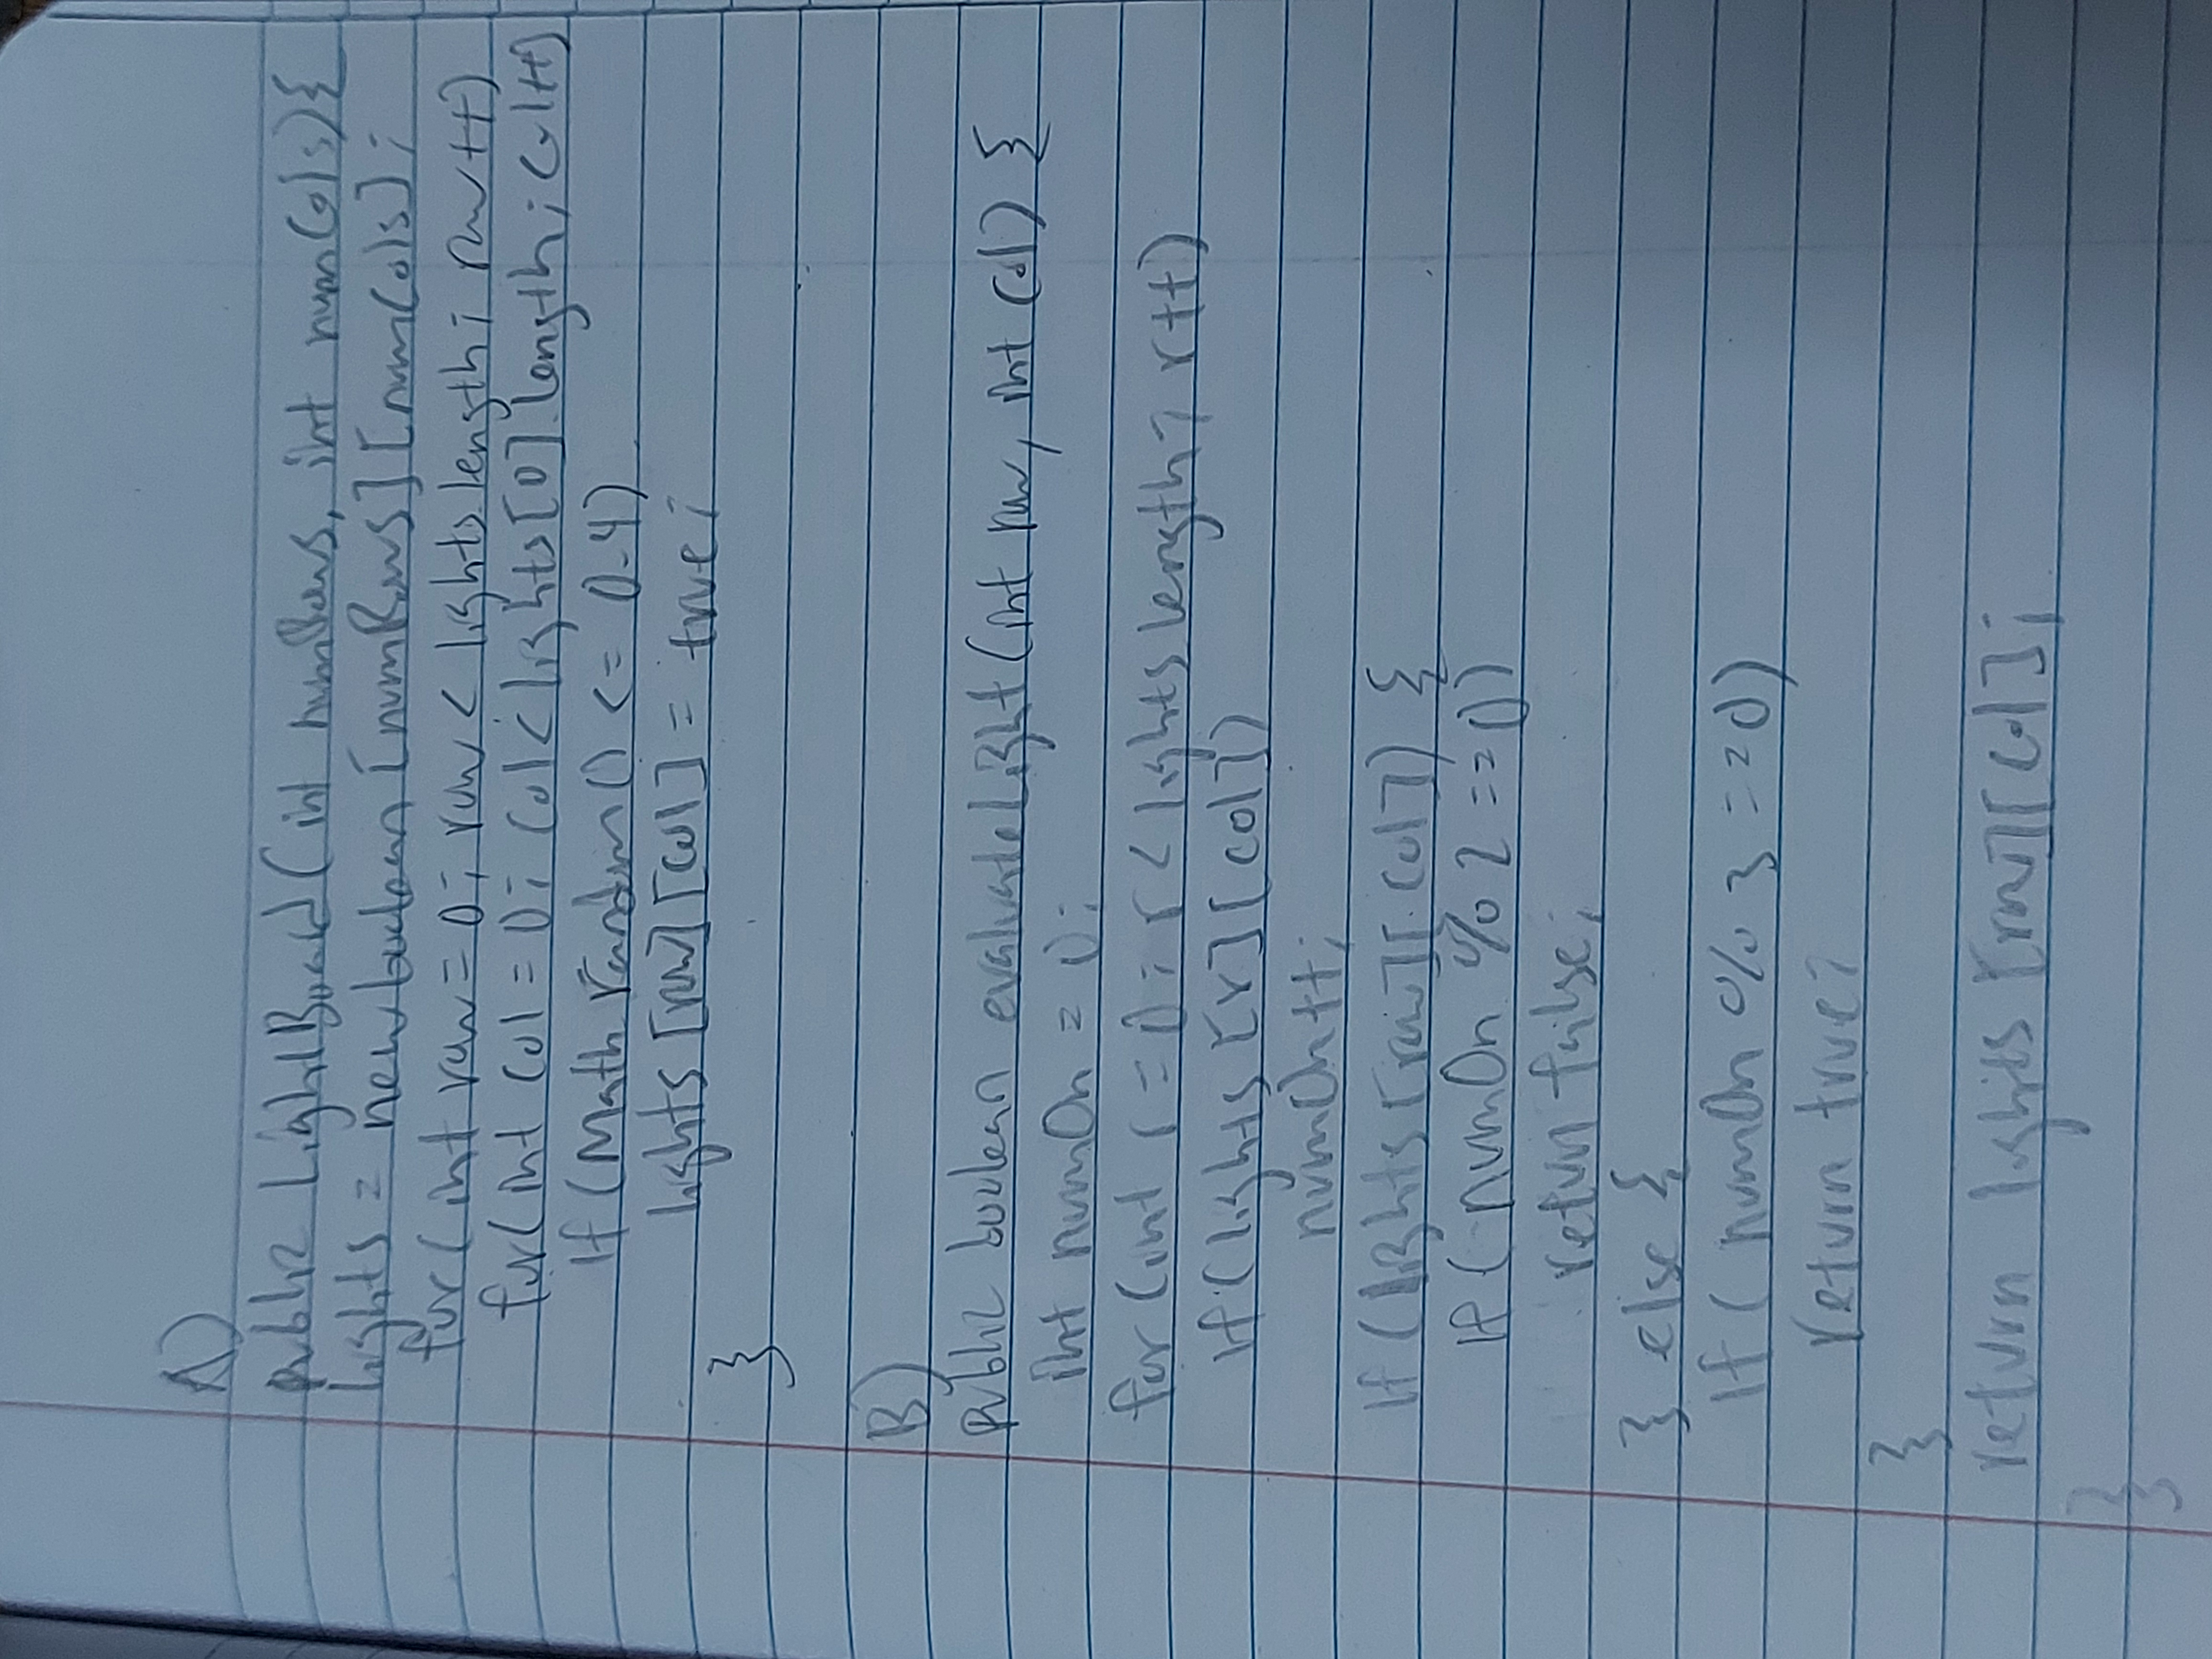 A)
public LightBoard(int numRows, int numCols){
lights = new boolean [numRows][numCols];
for(int row = 0; row < lights.length; row++)
for(int col = 0; col < lights[0].length; col++)
if (Math.random() <= 0.4)
lights [row][col] = true;
}
B)
public boolean evaluateLight(int row, int col) {
int numOn = 0;
for (int r = 0; r < lights.length; r++)
if (lights [r][col])
numOn++;
if (lights [row][col]) {
if (numOn % 2 == 0)
return false;
} else {
if (numOn % 3 == 0)
return true;
}
return lights [row][col];
}